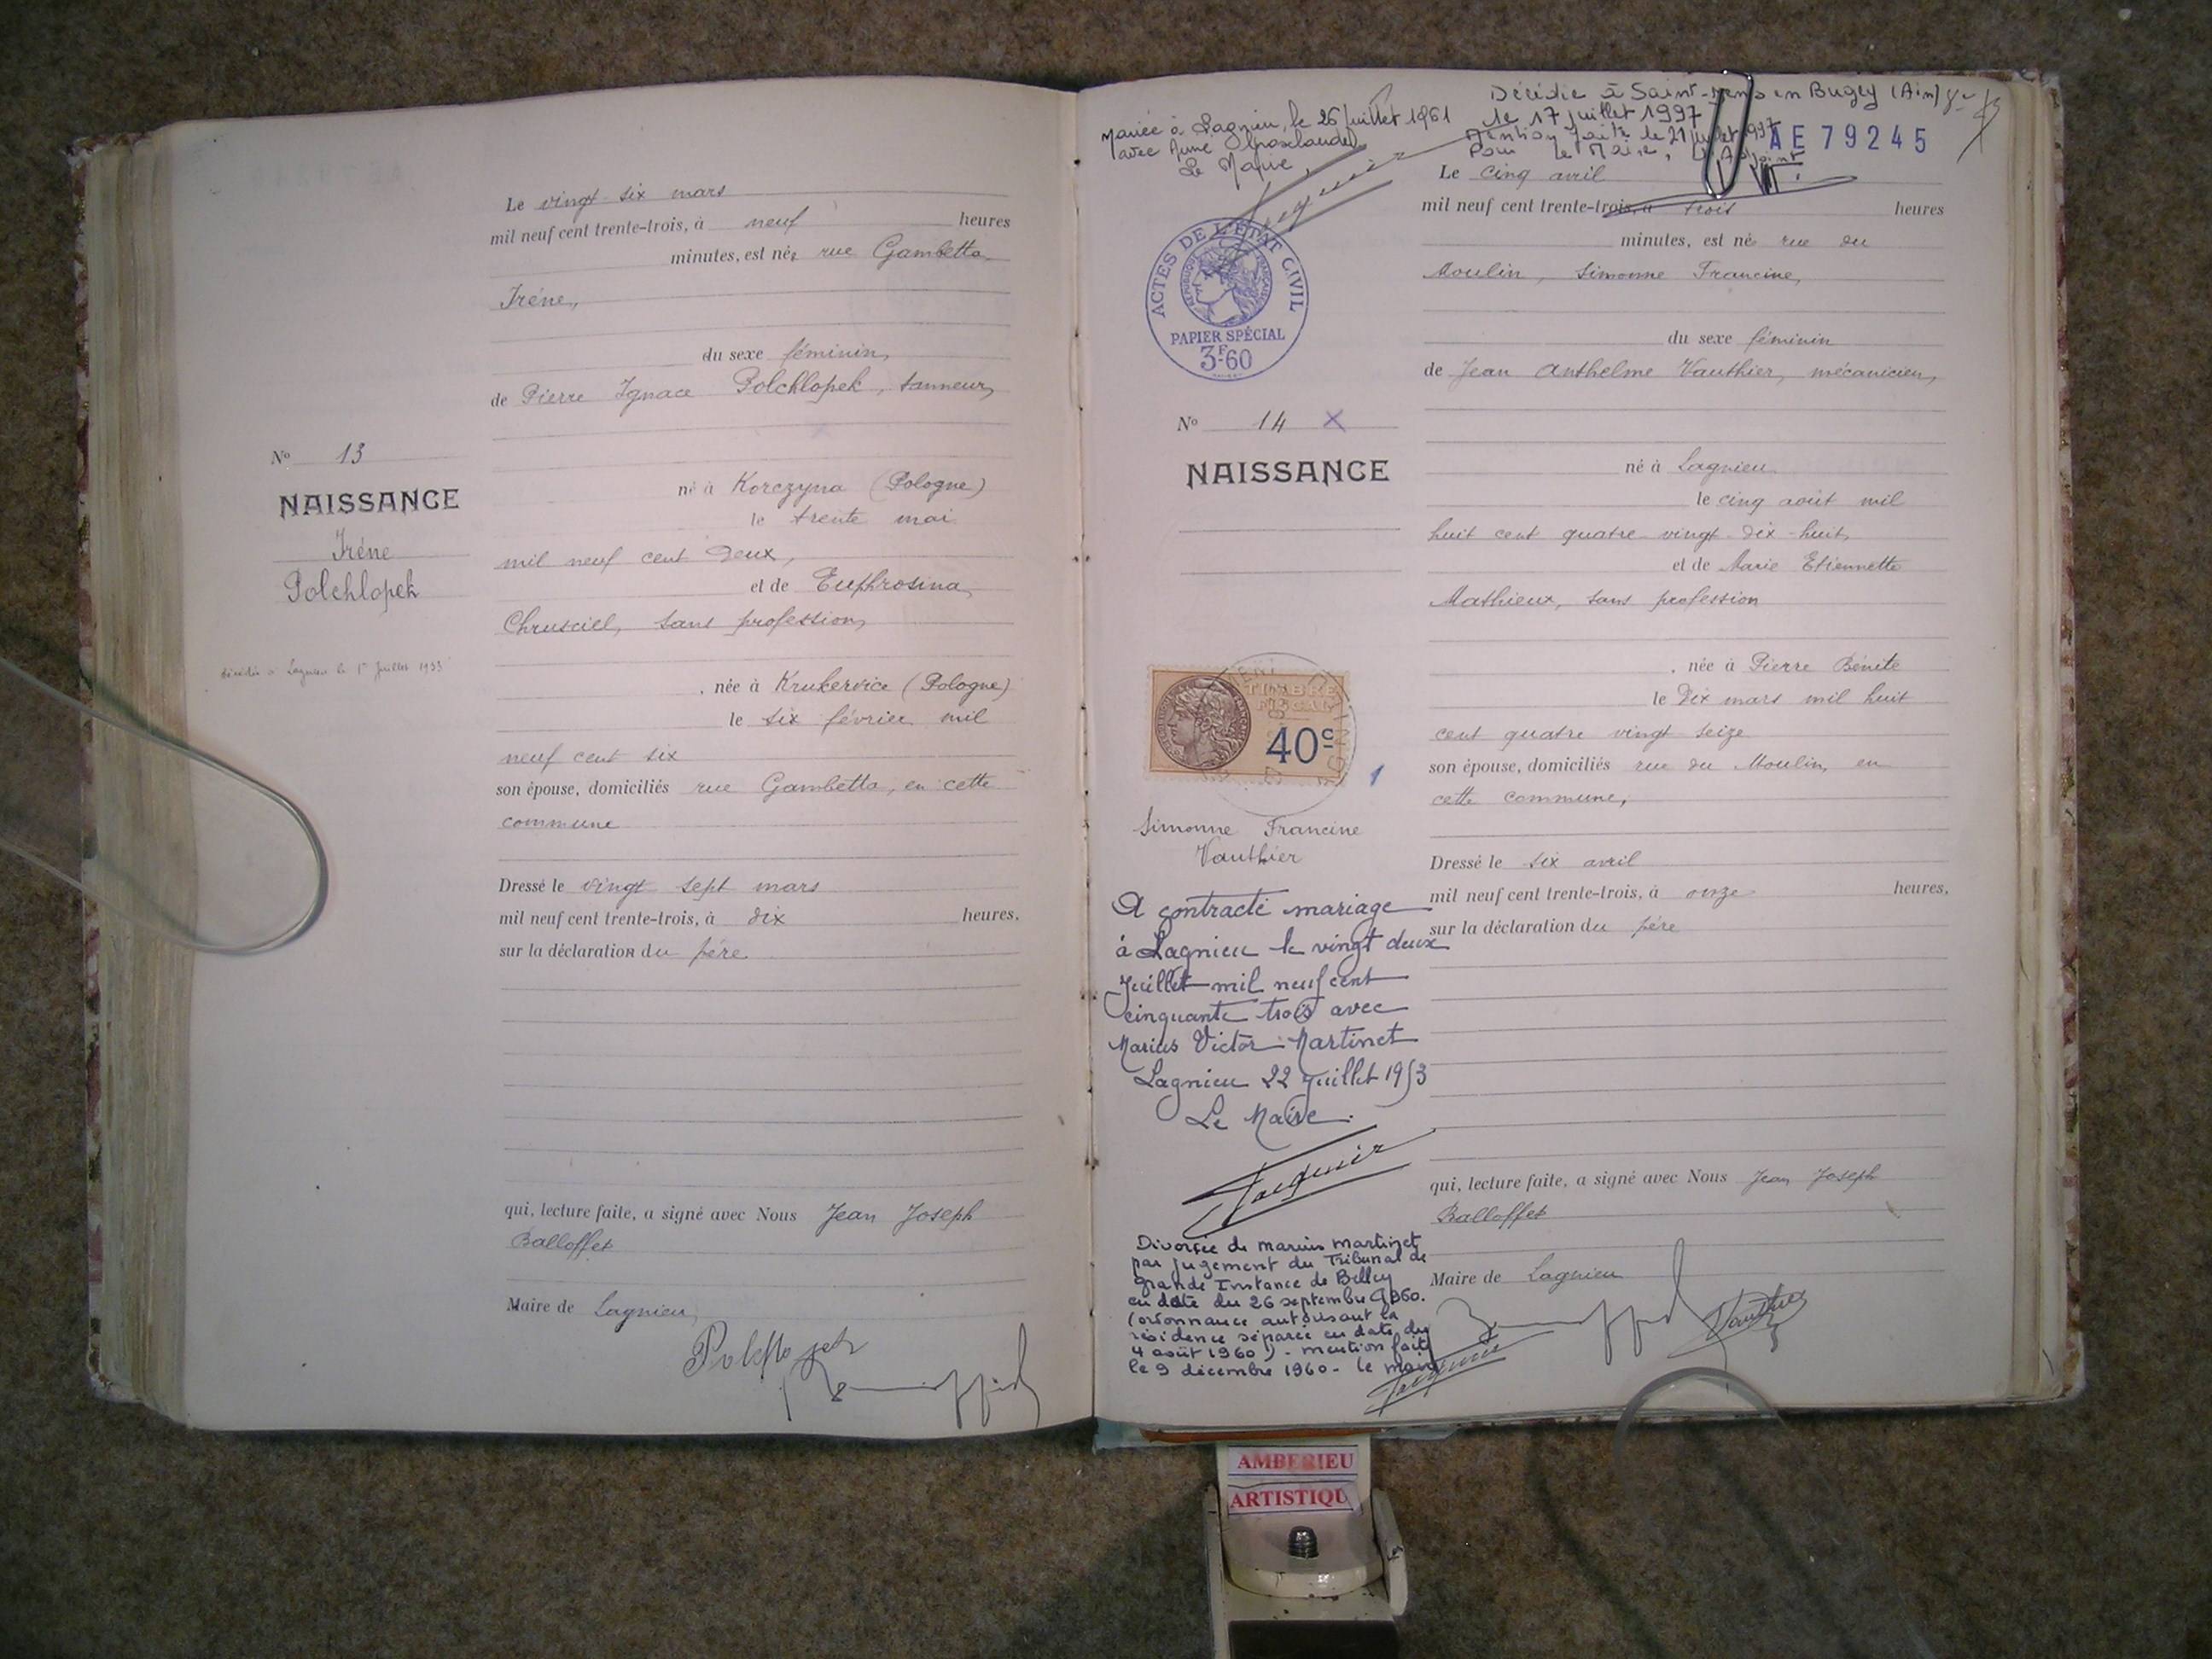 Le vingt-six mars
mil neuf cent trente-trois, à neuf heures
minutes, est née rue Gambetta
Iréne,
du sexe féminin,
de Pierre Ignace Polchlopek, tanneur,
né à Korczyna (Pologne)
le trente mai
mil neuf cent deux,
et de Euphrosina
Chrusciel, sans profession,
, née à Krukervice (Pologne)
le six février mil
neuf cent six
son épouse, domiciliés rue Gambetta, en cette
commune
Dressé le vingt sept mars
mil neuf cent trente-trois, à dix heures.
sur la déclaration du père
qui, lecture faite, a signé avec Nous Jean Joseph
Balloffet
Maire de Lagnieu,
No 13
NAISSANCE
Iréne
Polchlopek
décédée à Lagnieu le 1er Juillet 1933
Mariée à Lagnieu, le 26 juillet 1961
avec Aimé
Le Maire,
Décédée à Saint-Denis en Bugey (Ain)
le 17 juillet 1997
Mention faite le 21 juillet 1997
Pour le Maire, L'Adjoint
AE 79245
ACTES DE L'ÉTAT CIVIL
RÉPUBLIQUE FRANÇAISE
PAPIER SPÉCIAL
3F60
No 14 X
NAISSANCE
TIMBRE
FISCAL
40c
1
Simonne Francine
Vauthier
A contracté mariage
à Lagnieu le vingt deux
Juillet mil neuf cent
cinquante trois avec
Marius Victor Martinet
Lagnieu 22 Juillet 1953
Le Maire.
Divorcée de marius martinet
par jugement du Tribunal de
Grande Instance de Belley
en date du 26 septembre 1960.
(ordonnance autorisant la
résidence séparée en date du
4 août 1960) - mention faite
le 9 décembre 1960 - le maire
Le cinq avril
mil neuf cent trente-trois, à trois heures
minutes, est née rue du
Moulin, Simonne Francine,
du sexe féminin
de Jean Anthelme Vauthier, mécanicien,
né à Lagnieu
le cinq août mil
huit cent quatre-vingt-dix-huit,
et de Marie Etiennette
Mathieux, sans profession
, née à Pierre Bénite
le dix mars mil huit
cent quatre vingt seize
son épouse, domiciliés rue du Moulin, en
cette commune,
Dressé le six avril
mil neuf cent trente-trois, à onze heures,
sur la déclaration du père
qui, lecture faite, a signé avec Nous Jean Joseph
Balloffet
Maire de Lagnieu
Vauthier
AMBERIEU
ARTISTIQU